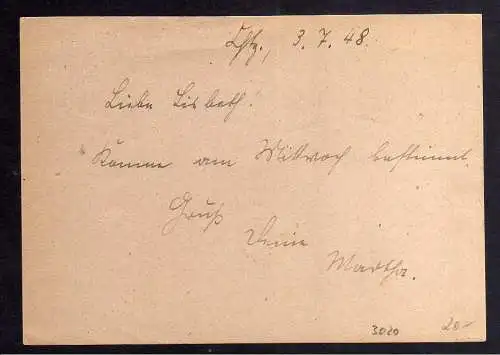 Lpzg., 3. 7. 48.
Liebe Lisbeth!
Komme am Mittwoch bestimmt.
Gruß
Deine
Martha.
3020 20.-